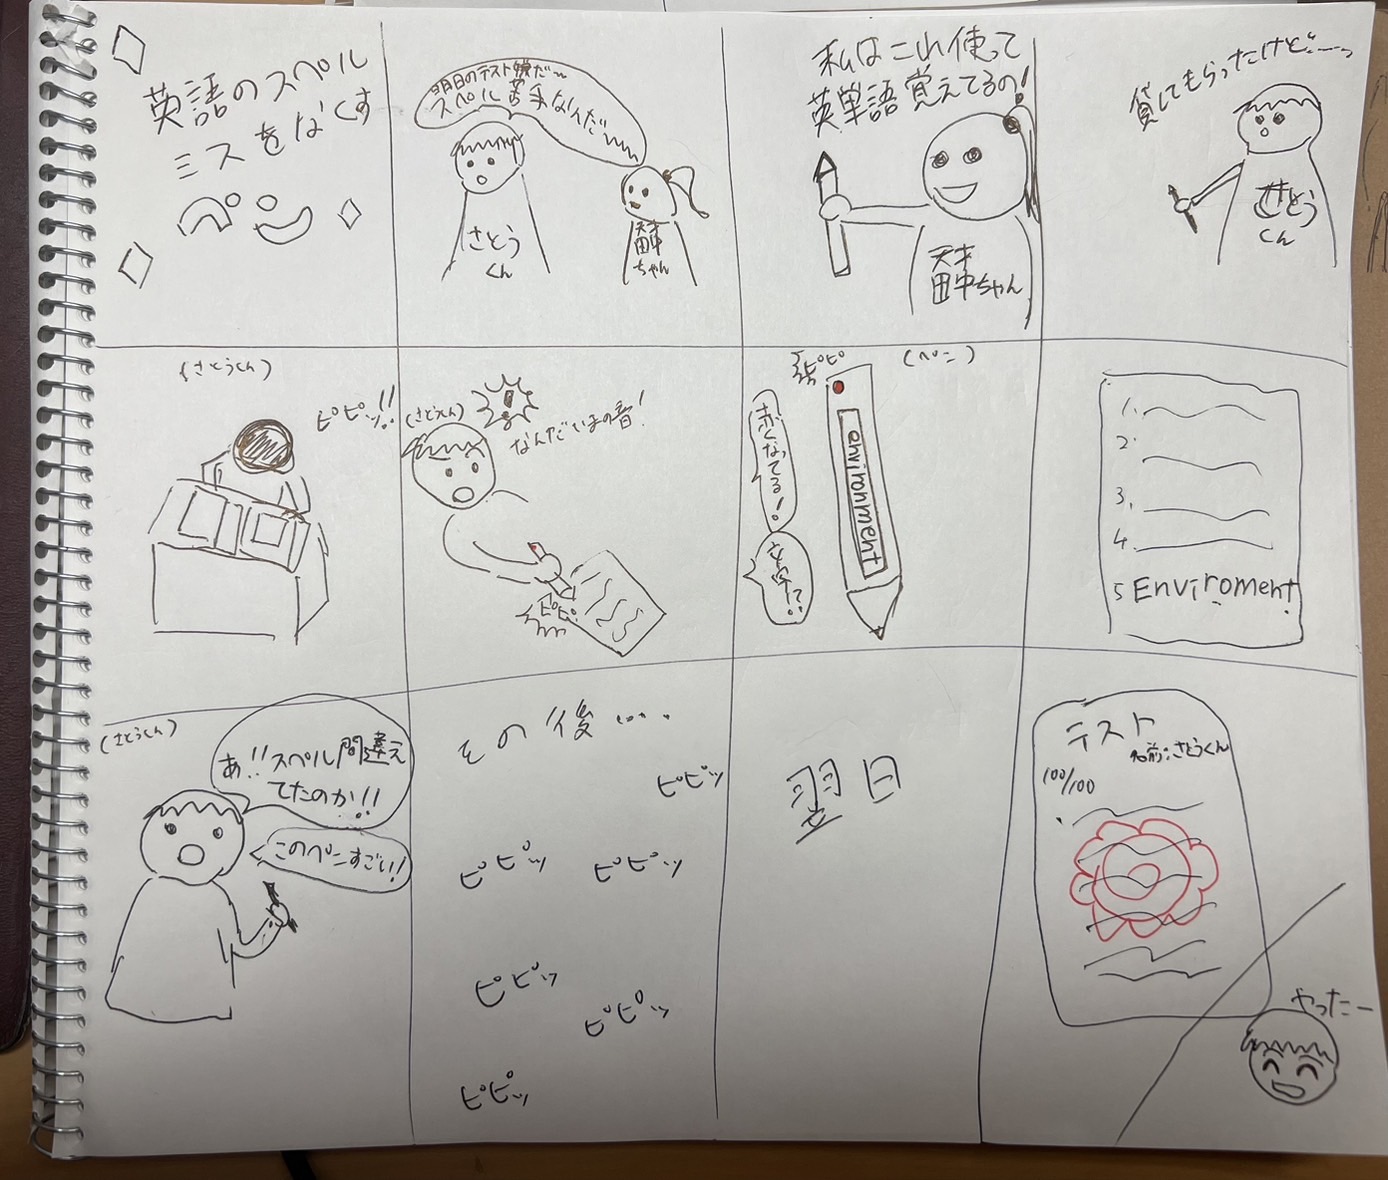 英語のスペル
ミスをなくす
ペン
明日のテスト嫌だ〜
スペル苦手なんだ〜
さとう
くん
天才
田中
ちゃん
私はこれ使って
英単語覚えてるの!
天才
田中ちゃん
貸してもらったけど……っ
さとう
くん
(さとうくん)
ピピッ!!
(さとうくん)
なんだいまの音!
ピピ!
ピピ
(ペン)
赤くなってる!
文字!?
environment
1.
2.
3.
4.
5 Enviroment
(さとうくん)
あ!!スペル間違え
てたのか!!
このペンすごい!
その後……
ピピッ
ピピッ
ピピッ
ピピッ
ピピッ
ピピッ
翌日
テスト
名前:さとうくん
100/100
やったー